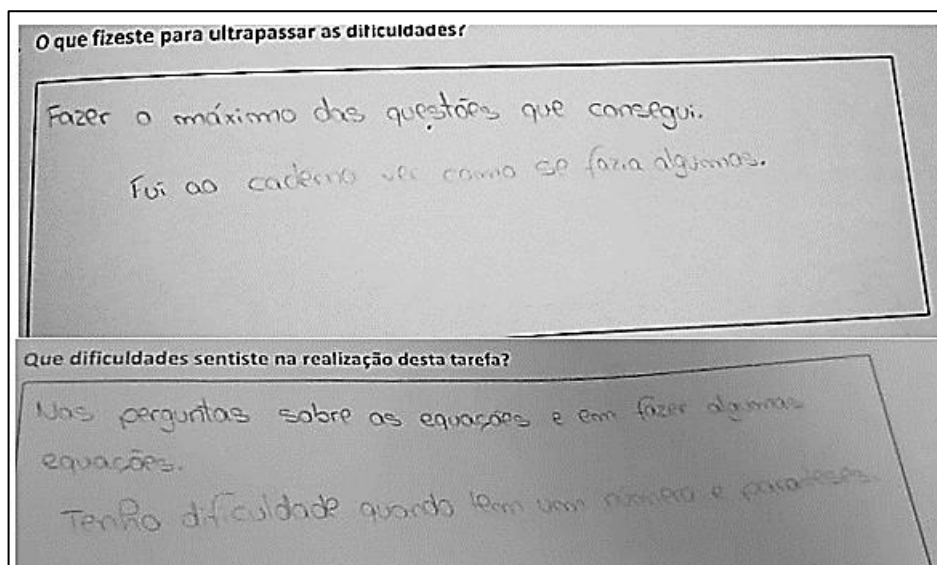 O que fizeste para ultrapassar as dificuldades?
Fazer o máximo das questões que consegui.
Fui ao caderno ver como se fazia algumas.
Que dificuldades sentiste na realização desta tarefa?
Nas perguntas sobre as equações e em fazer algumas
equações.
Tenho dificuldade quando tem um número e parateses.